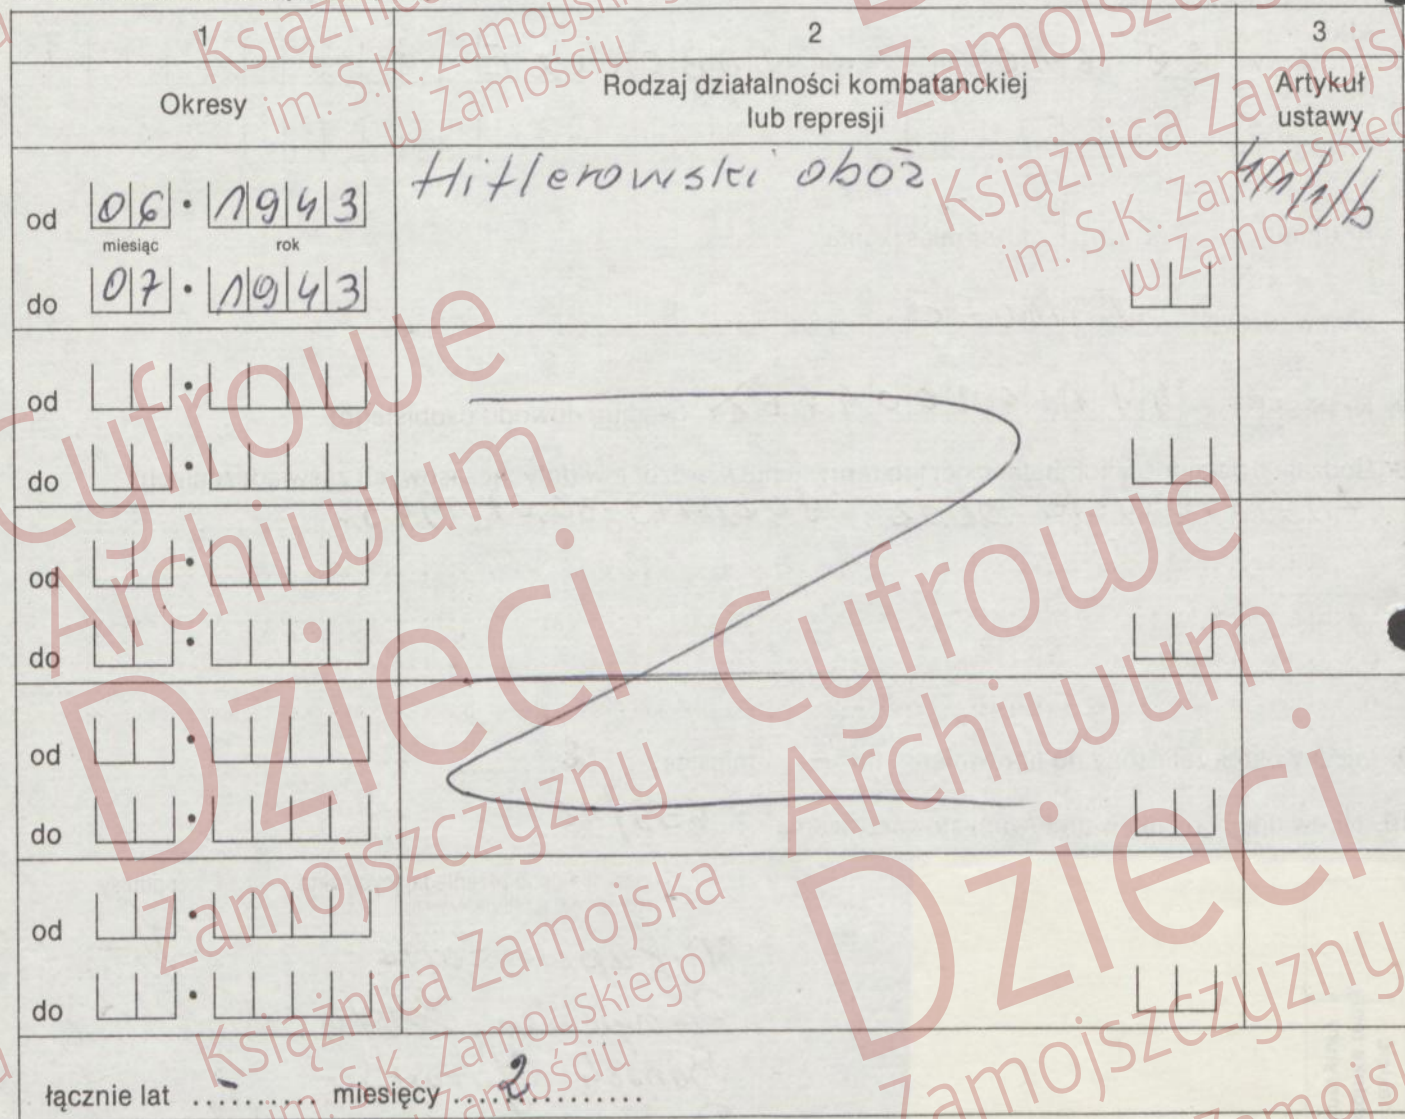 1 2 3
Okresy Rodzaj działalności kombatanckiej lub represji Artykuł ustawy
od 06 • 1943 Hitlerowski obóz 4/1/1/b
miesiąc rok
do 07 • 1943
od
do
od
do
od
do
od
do
łącznie lat .... - .... miesięcy .... 2 ....
Cyfrowe
Archiwum
Dzieci
Zamojszczyzny
Książnica Zamojska
im. S.K. Zamoyskiego
w Zamościu